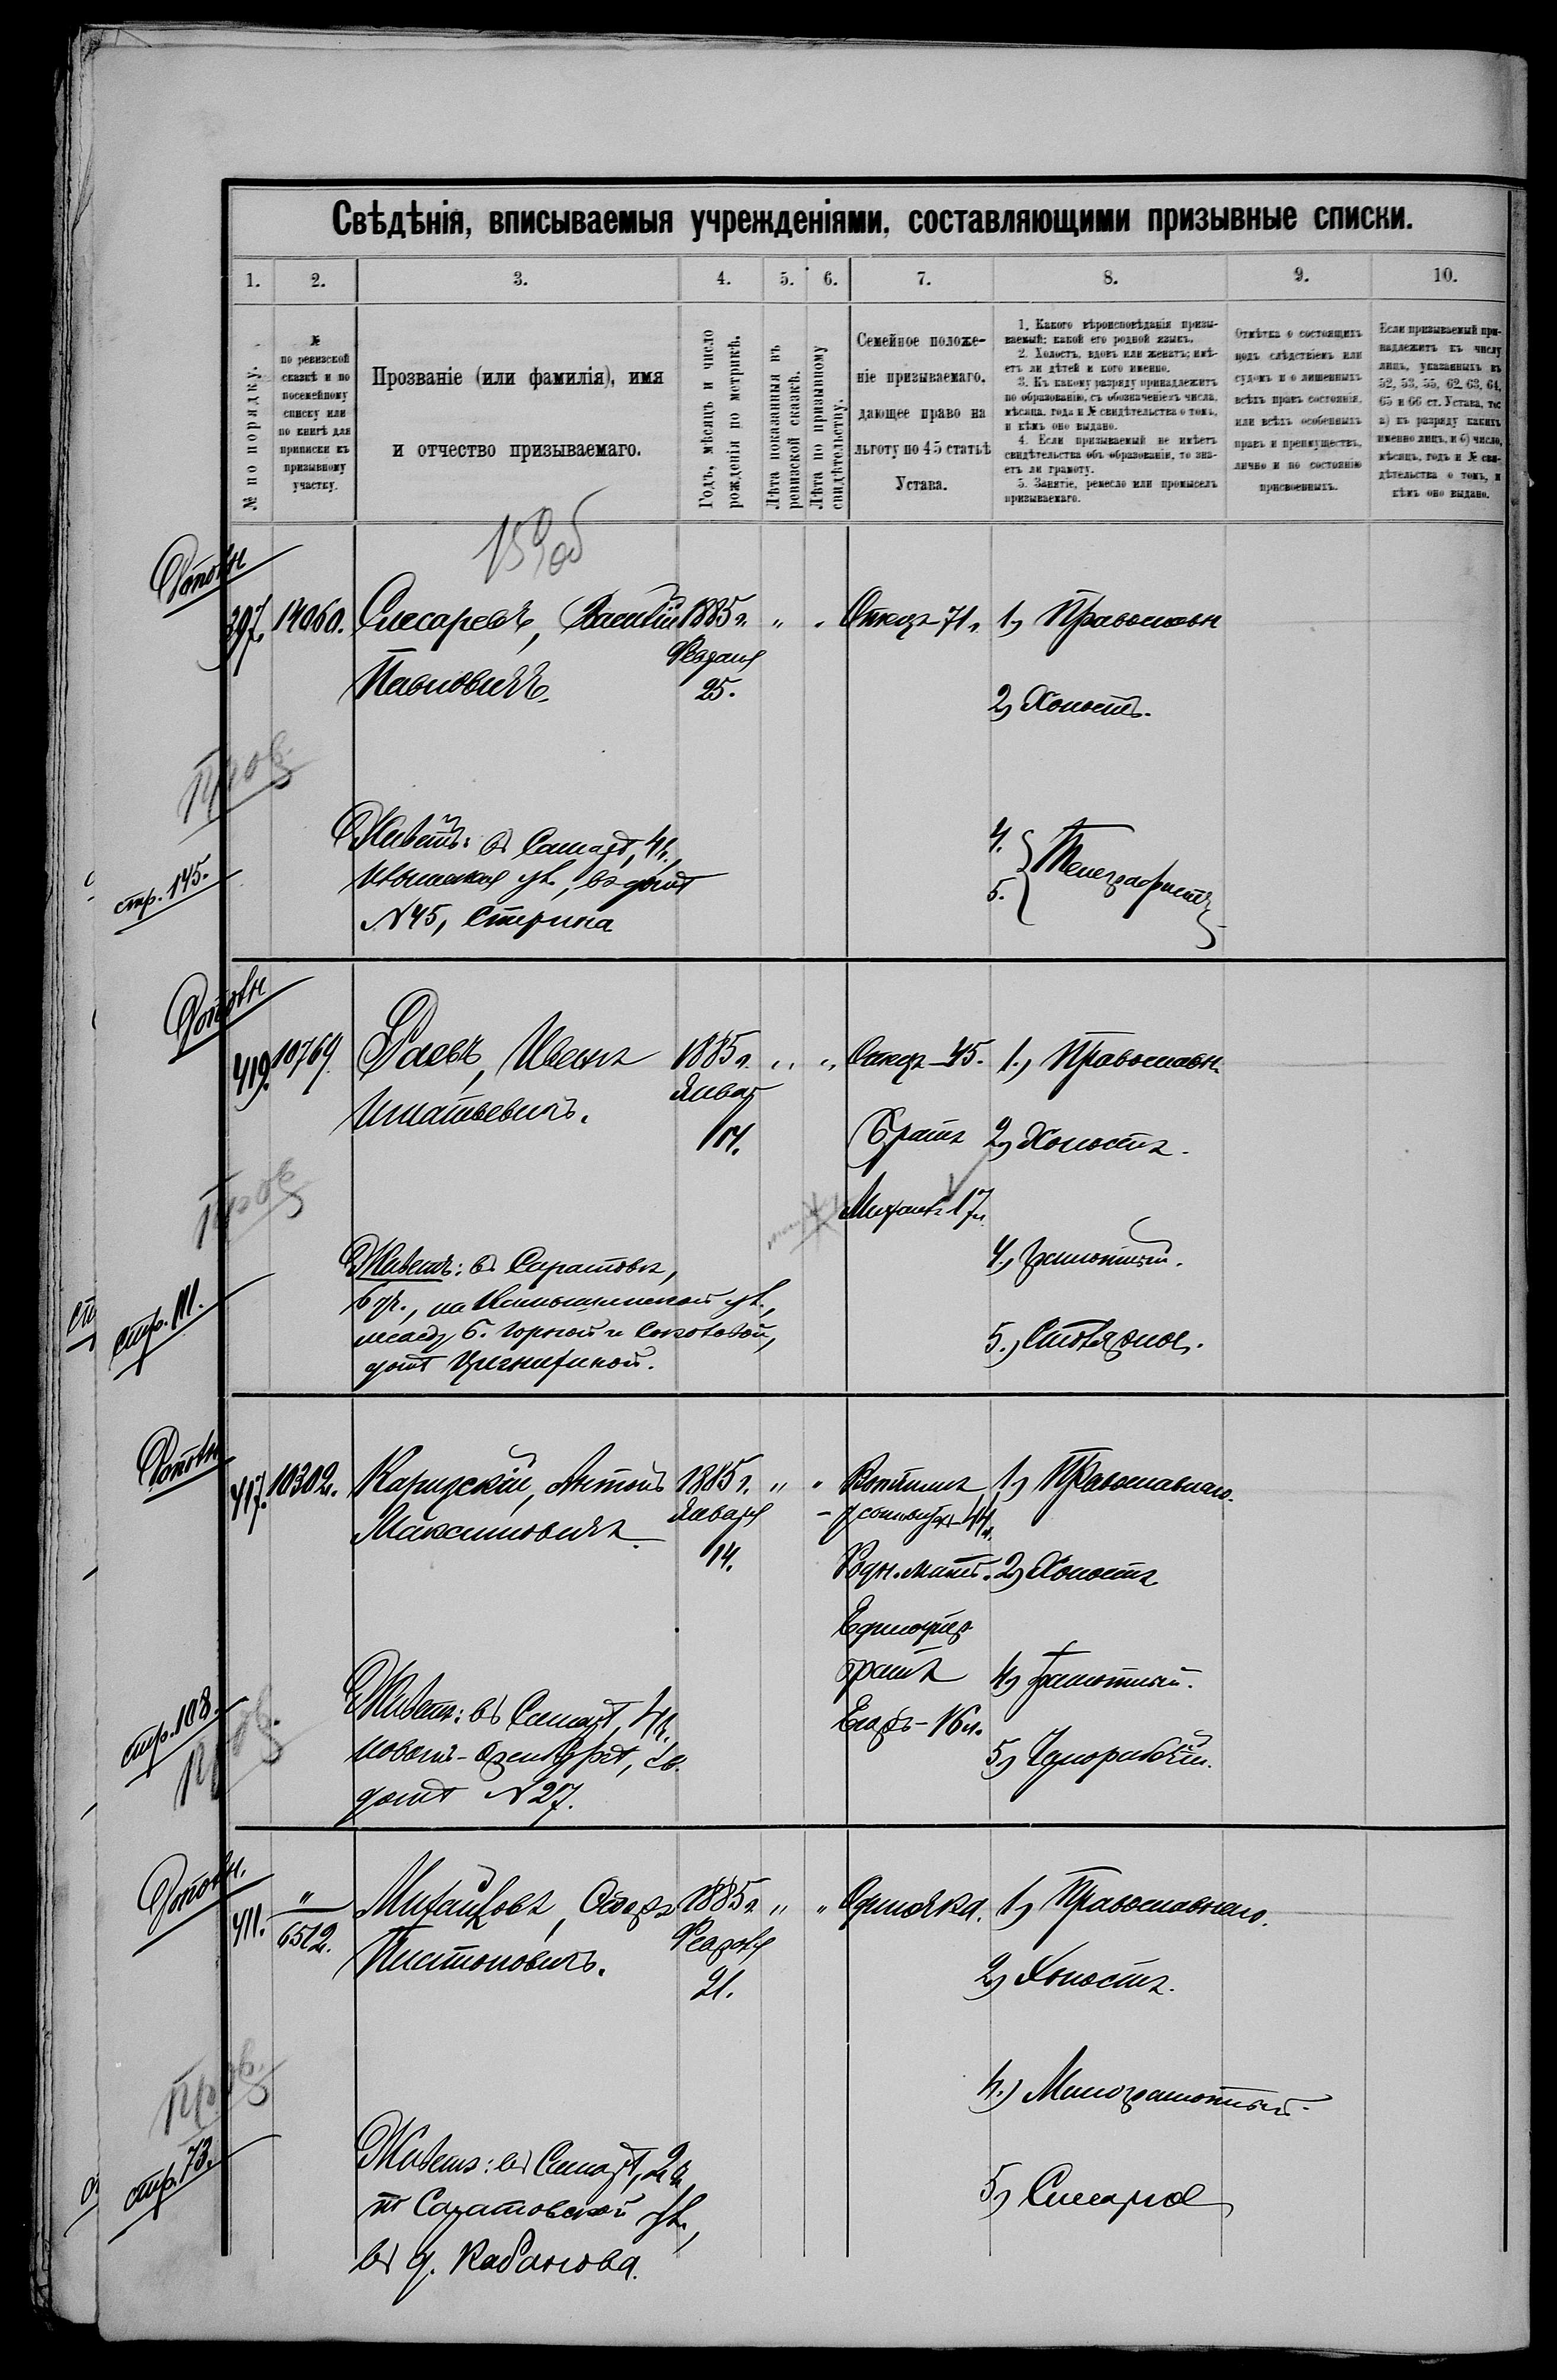 Свѣдѣнія, вписываемыя учрежденіями, составляющими призывные списки.
1. 2. 3. 4. 5. 6. 7. 8. 9. 10.
№ по порядку.
№
по ревизской
сказкѣ и по
посемейному
списку или
по книгѣ для
приписки къ
призывному
участку.
Прозваніе (или фамилія), имя
и отчество призываемаго.
Годъ, мѣсяцъ и число
рожденія по метрикѣ.
Лѣта показанныя въ
ревизской сказкѣ.
Лѣта по призывному
свидѣтельству.
Семейное положе-
ніе призываемаго,
дающее право на
льготу по 45 статьѣ
Устава.
1. Какого вѣроисповѣданія призы-
ваемый; какой его родной языкъ.
2. Холостъ, вдовъ или женатъ; имѣ-
етъ ли дѣтей и кого именно.
3. Къ какому разряду принадлежитъ
по образованію, съ обозначеніемъ числа,
мѣсяца, года и № свидѣтельства о томъ,
и кѣмъ оно выдано.
4. Если призываемый не имѣетъ
свидѣтельства объ образованіи, то зна-
етъ ли грамоту.
5. Занятіе, ремесло или промыселъ
призываемаго.
Отмѣтка о состоящихъ
подъ слѣдствіемъ или
судомъ и о лишенныхъ
всѣхъ правъ состоянія,
или всѣхъ особенныхъ
правъ и преимуществъ,
лично и по состоянію
присвоенныхъ.
Если призываемый при-
надлежитъ къ числу
лицъ, указанныхъ въ
52, 53, 55, 62, 63, 64,
65 и 66 ст. Устава, то:
а) къ разряду какихъ
именно лицъ, и б) число,
мѣсяцъ, годъ и № сви-
дѣтельства о томъ, и
кѣмъ оно выдано.
Дополн
397. 14060. Слесаревъ, Василій 1885 г. " " Отецъ - 71 г. 1) Православн
Павловичъ. Февраля
25.
2) Холостъ.
Пров.
Живетъ: въ Самарѣ, 4 ч.
ул., въ домѣ
N 45,
4.
5. } Телеграфистъ
стр. 145.
Дополн
419. 10769. Раевъ, Иванъ 1885 г. " " Отецъ - 45. 1.) Православн.
Игнатьевичъ. Январ
14.
Братъ 2) Холостъ.
Михаилъ 17 л.
Пров
Живетъ: въ Саратовѣ,
6 уч., на Ильинской ул.,
между Б. Горной и Соколовой,
домъ
4.) Грамотный.
5.) Столярное.
стр. 111.
Дополн
417. 10302. Антонъ 1885 г. " " 1) Православнаго.
Максимовичъ. Января
14.
44 л.
Родн. мать. 2) Холостъ
братъ
Егоръ - 16 л.
4) Грамотный.
5) Чернорабочій.
Живетъ: въ Самарѣ, 4 ч.
Новый - Оренбургѣ, въ
домѣ N 27.
стр. 108.
Пров.
Дополн.
411. " Михайловъ, Ѳедоръ 1885 г. " " Одиночка. 1) Православнаго.
6512. Платоновичъ. Февраля
21.
2) Холостъ.
Пров.
4.) Малограмотный.
5) Слесарное
Живетъ: въ Самарѣ, 2 ч.
по Саратовской ул.,
въ д. Кабанова.
стр. 73.